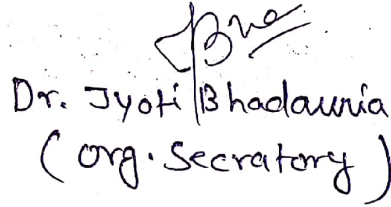 Dr. Jyoti Bhadauria
(org. Secratory)